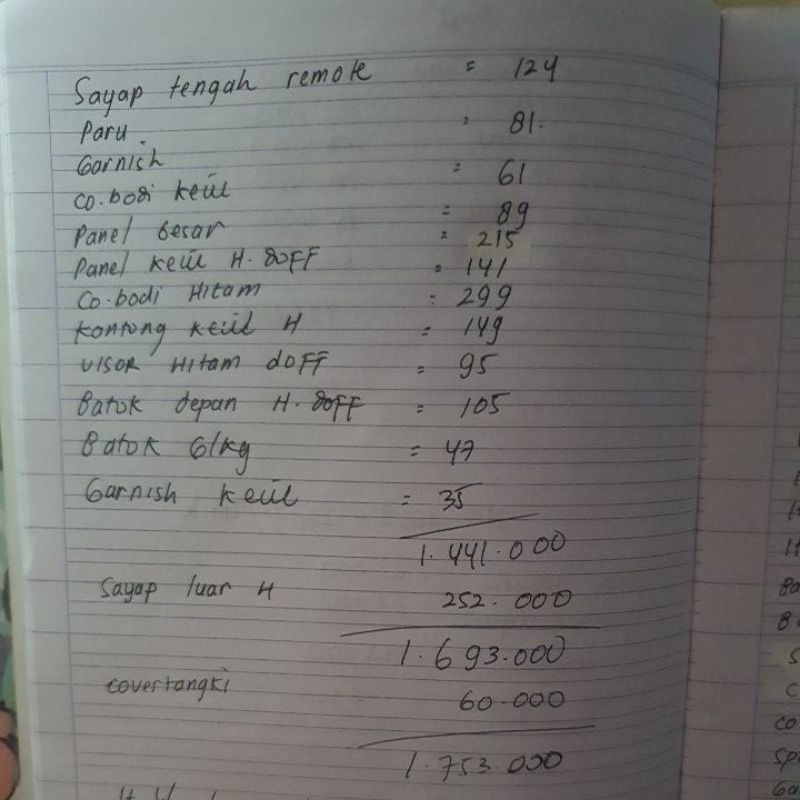 Sayap tengah remote = 124
Paru = 81.
Garnish = 61
Co.bodi kecil = 89
Panel besar = 215
Panel kecil H. doff = 141
Co.bodi Hitam = 299
kontong kecil H = 149
visor Hitam doff = 95
Batok depan H. doff = 105
Batok Glkg = 47
Garnish kecil = 35
1.441.000
Sayap luar H 252.000
1.693.000
covertangki 60.000
1.753.000